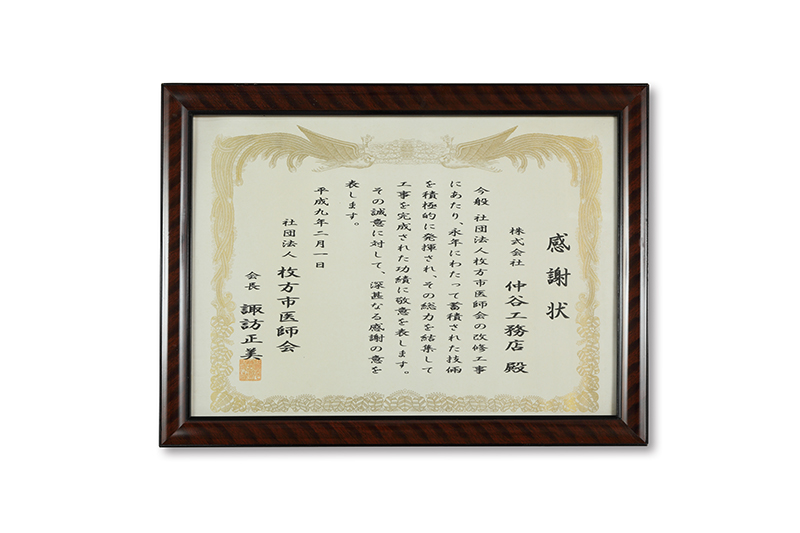 感謝状
株式会社 仲谷工務店 殿
今般 社団法人枚方市医師会の改修工事
にあたり、永年にわたって蓄積された技倆
を積極的に発揮され、その総力を結集して
工事を完成された功績に敬意を表します。
その誠意に対して、深甚なる感謝の意を
表します。
平成九年二月一日
社団法人 枚方市医師会
会長 諏訪正美